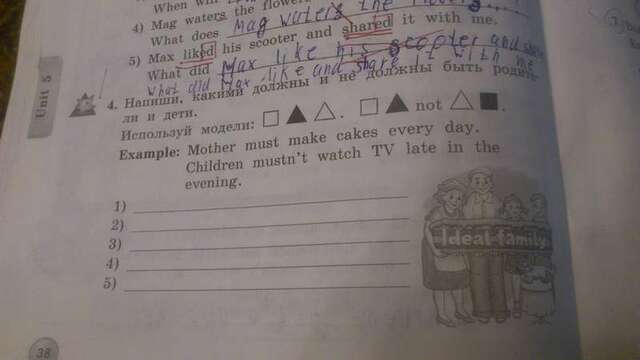 When will
4) Mag waters the flowers
What does Mag waters the flowers
5) Max liked his scooter and shared it with me.
What did Max like his scooter and share
What did Max like and share it with me
Unit 5
4. Напиши, какими должны и не должны быть родители и дети.
Используй модели: □ ▲ △. □ ▲ not △ ■.
Example: Mother must make cakes every day.
Children mustn't watch TV late in the
evening.
1)
2)
3)
4)
5)
Ideal family
38